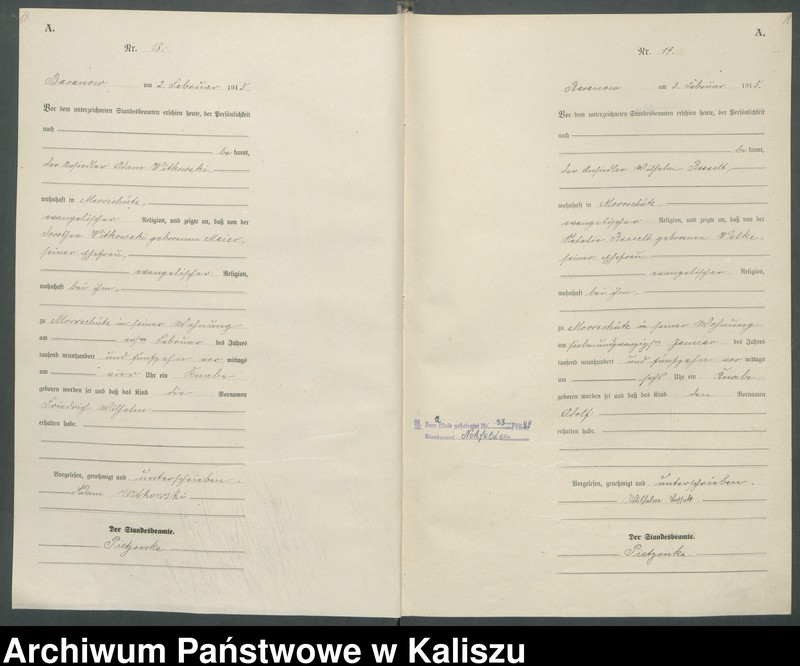 A.
Nr. 18.
Baranow am 2. Februar 1915.
Vor dem unterzeichneten Standesbeamten erschien heute, der Persönlichkeit
nach
bekannt,
der Ansiedler Adam Witkowski,
wohnhaft in Moorschütz,
evangelischer Religion, und zeigte an, daß von der
Dorothea Witkowski geborenen Maier,
seiner Ehefrau,
evangelischer Religion,
wohnhaft bei ihm,
zu Moorschütz in seiner Wohnung
am Februar des Jahres
tausend neunhundert und fünfzehn vor mittags
um vier Uhr ein Knabe
geboren worden sei und daß das Kind die Vornamen
Friedrich Wilhelm
erhalten habe.
Vorgelesen, genehmigt und unterschrieben.
Adam Witkowski
Der Standesbeamte.
Pietzonka
A.
Nr. 19.
Baranow am 2. Februar 1915.
Vor dem unterzeichneten Standesbeamten erschien heute, der Persönlichkeit
nach
bekannt,
der Ansiedler Wilhelm
wohnhaft in Moorschütz,
evangelischer Religion, und zeigte an, daß von der
Natalie geborenen
seiner Ehefrau,
evangelischer Religion,
wohnhaft bei ihm,
zu Moorschütz in seiner Wohnung
am siebenundzwanzigsten Januar des Jahres
tausend neunhundert und fünfzehn vor mittags
um sechs Uhr ein Knabe
geboren worden sei und daß das Kind den Vornamen
Adolf
erhalten habe.
Zum 2 Male geheiratet Nr. 33
Standesamt Nohfelden
Vorgelesen, genehmigt und unterschrieben.
Wilhelm
Der Standesbeamte.
Pietzonka.
Archiwum Państwowe w Kaliszu